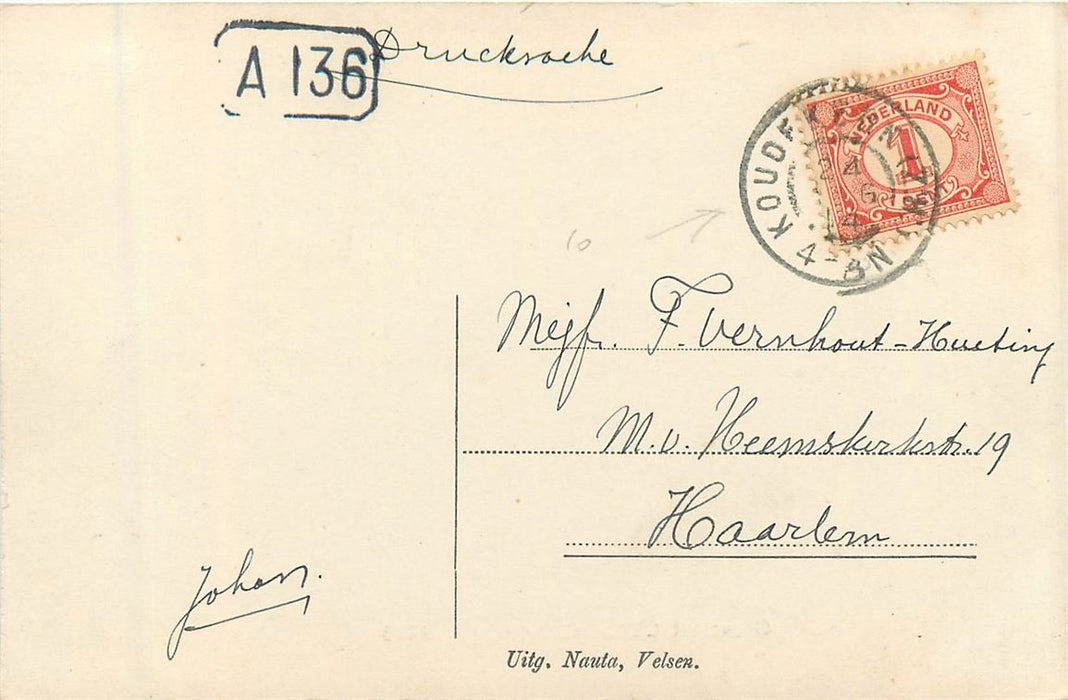 A 136
Drucksache
NEDERLAND
1
1 CENT
24
6
14
4-5N
Mejfr. F. Vernhout-Hueting
M.v. Heemskerkstr. 19
Haarlem
Johan.
Uitg. Nauta, Velsen.